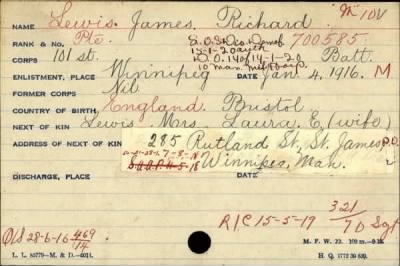 M 10V
NAME Lewis, James Richard
RANK & NO. Pte. S.O.S. Demob 700585.
15-1-20 auth
CORPS 101st. D.O. 140 14-1-20 Batt.
ENLISTMENT, PLACE Winnipeg DATE Jan 4, 1916. M
FORMER CORPS Nil
COUNTRY OF BIRTH England Bristol
NEXT OF KIN Lewis Mrs. Laura E. (wife)
ADDRESS OF NEXT OF KIN 285 Rutland St, St. James P.O.
Winnipeg, Man.
DISCHARGE, PLACE DATE
R/C 15-5-19 321/70 Sgt
O/S 28-6-16 469/14
L. L. 85779—M. & D.—6011. M. F. W. 22.
H. Q. 1772 39 839.